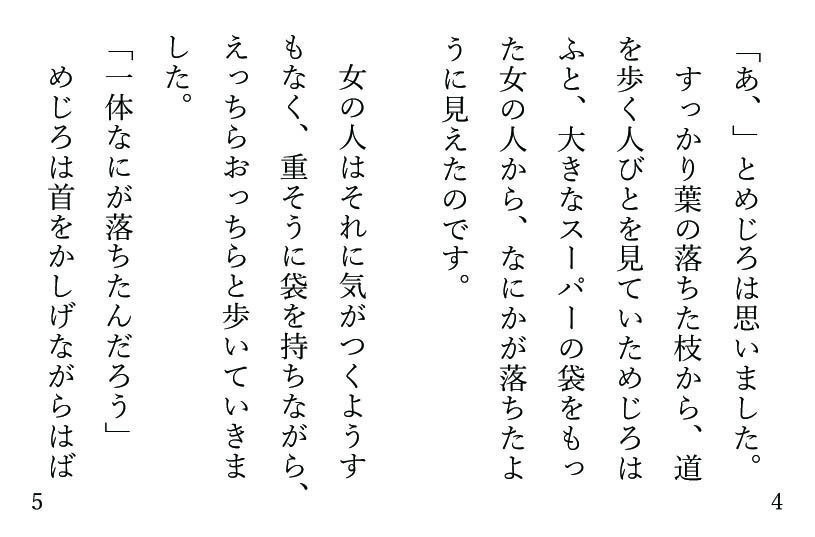 「あ、」とめじろは思いました。
　すっかり葉の落ちた枝から、道
を歩く人びとを見ていためじろは
ふと、大きなスーパーの袋をもっ
た女の人から、なにかが落ちたよ
うに見えたのです。
4
　女の人はそれに気がつくようす
もなく、重そうに袋を持ちながら、
えっちらおっちらと歩いていきま
した。
「一体なにが落ちたんだろう」
　めじろは首をかしげながらはば
5